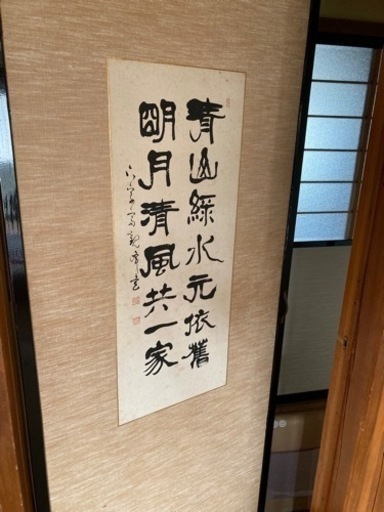 青山緑水元依舊
明月清風共一家